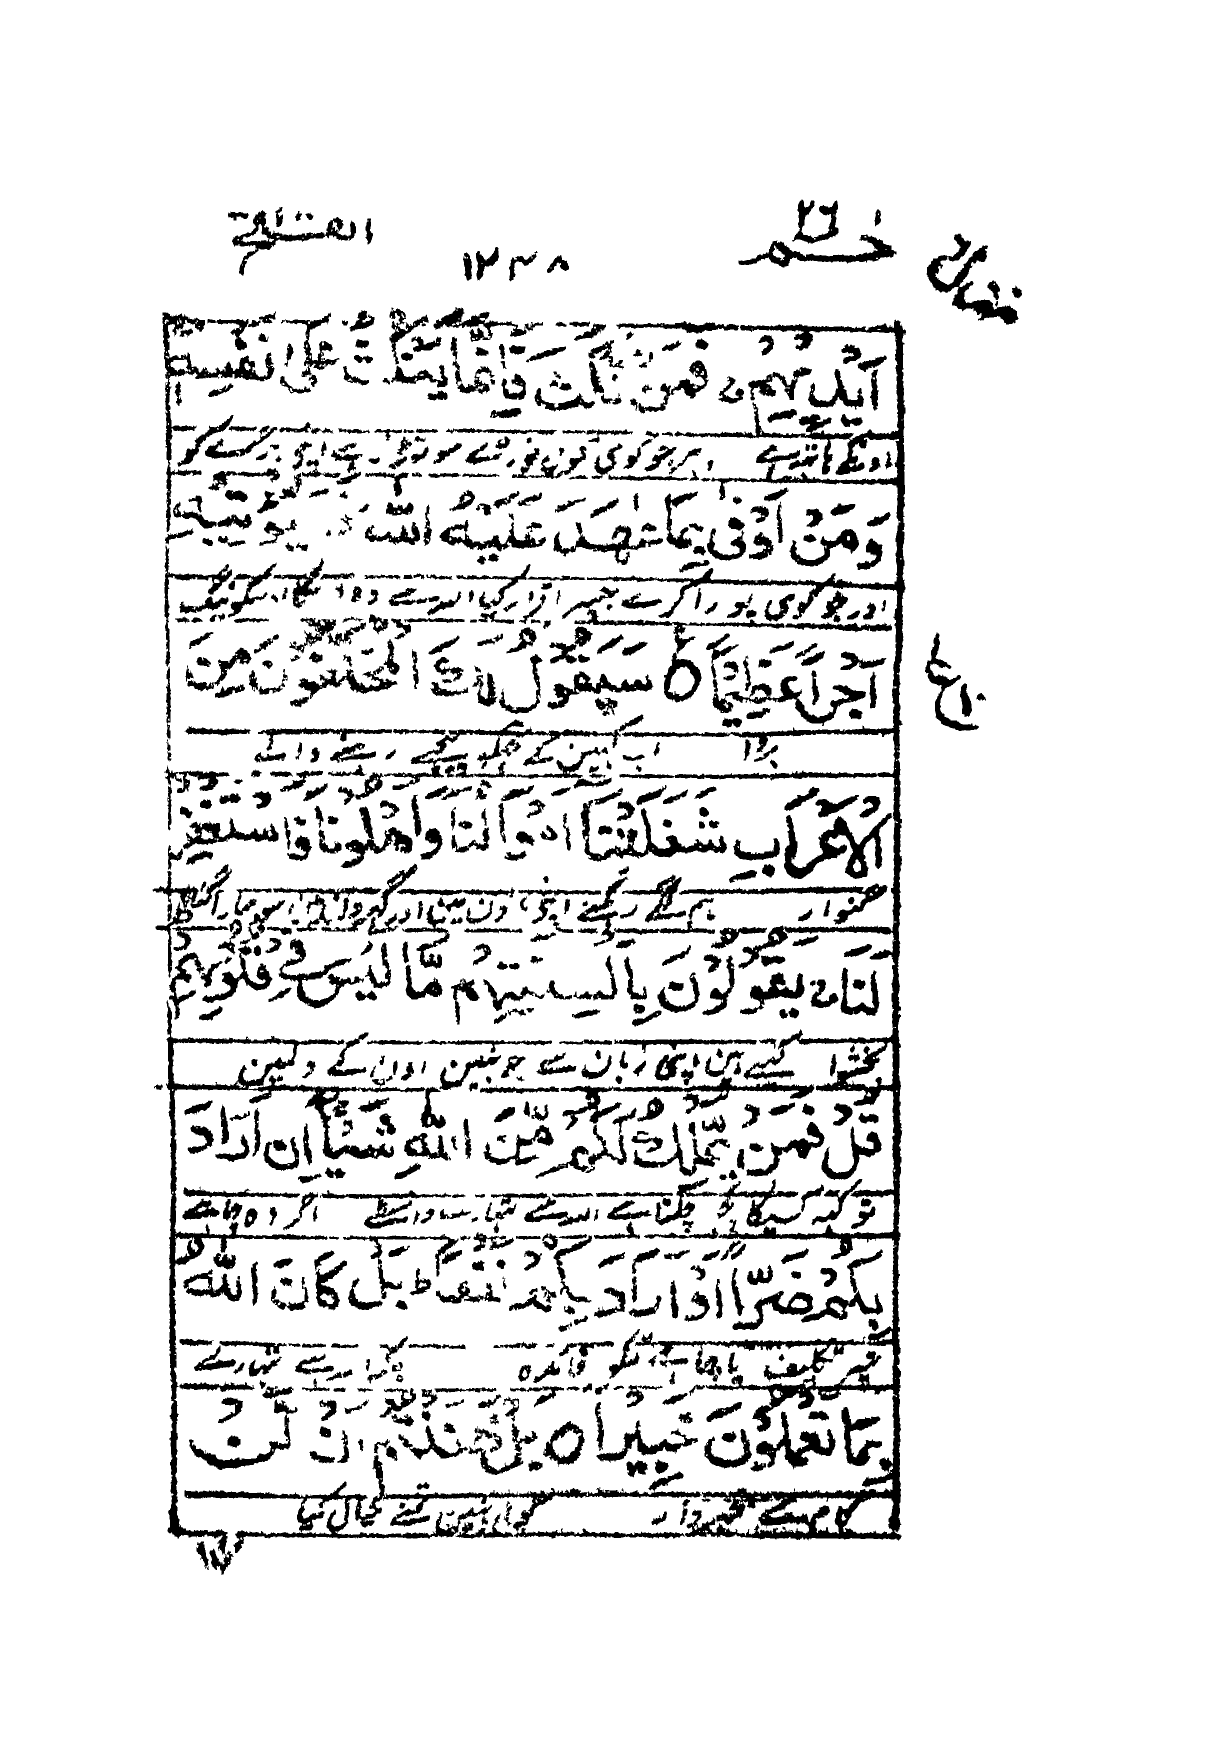 حٰم ٢٦
١٢٣٨
الفتح
أَيْدِيهِمْ ۚ فَمَنْ نَّكَثَ فَإِنَّمَا يَنْكُثُ عَلَىٰ نَفْسِهِ
اونکے ہاتھ کے پر جو کوی قول توڑے سو توڑتا ہے اپنے برے کو
وَمَنْ أَوْفَىٰ بِمَا عٰهَدَ عَلَيْهُ اللّٰهَ فَسَيُؤْتِيْهِ
اور جو کوی پورا کرے جسپر اقرار کیا اللہ سے دے گا اسکو نیگ
أَجْرًا عَظِيْمًا ○ سَيَقُوْلُ لَكَ الْمُخَلَّفُوْنَ مِنَ
بڑا اب کہین گے تجکو پیچھے رہنے والے
الْأَعْرَابِ شَغَلَتْنَا أَمْوَالُنَا وَأَهْلُوْنَا فَاسْتَغْفِرْ
گنوار ہم لگے رہگئے اپنے مالون مین اور گھر والون سو ہمارا گناہ
لَنَا ۚ يَقُوْلُوْنَ بِأَلْسِنَتِهِمْ مَّا لَيْسَ فِيْ قُلُوْبِهِمْ
بخشوا کہتے ہین اپنی زبان سے جو نہین اون کے دلمین
قُلْ فَمَنْ يَّمْلِكُ لَكُمْ مِّنَ اللّٰهِ شَيْئًا إِنْ أَرَادَ
تو کہہ کسیکا کچھ چلتا ہے اللہ سے تمہارے واسطے اگر وہ چاہے
بِكُمْ ضَرًّا أَوْ أَرَادَ بِكُمْ نَفْعًا ط بَلْ كَانَ اللّٰهُ
تمپر تکلیف یا چاہے تمکو فائدہ بلکہ اللہ ہے تمہارے
بِمَا تَعْمَلُوْنَ خَبِيْرًا ○ بَلْ ظَنَنْتُمْ أَنْ لَّنْ
کام سے خبردار کوئی نہین تمنے خیال کیا